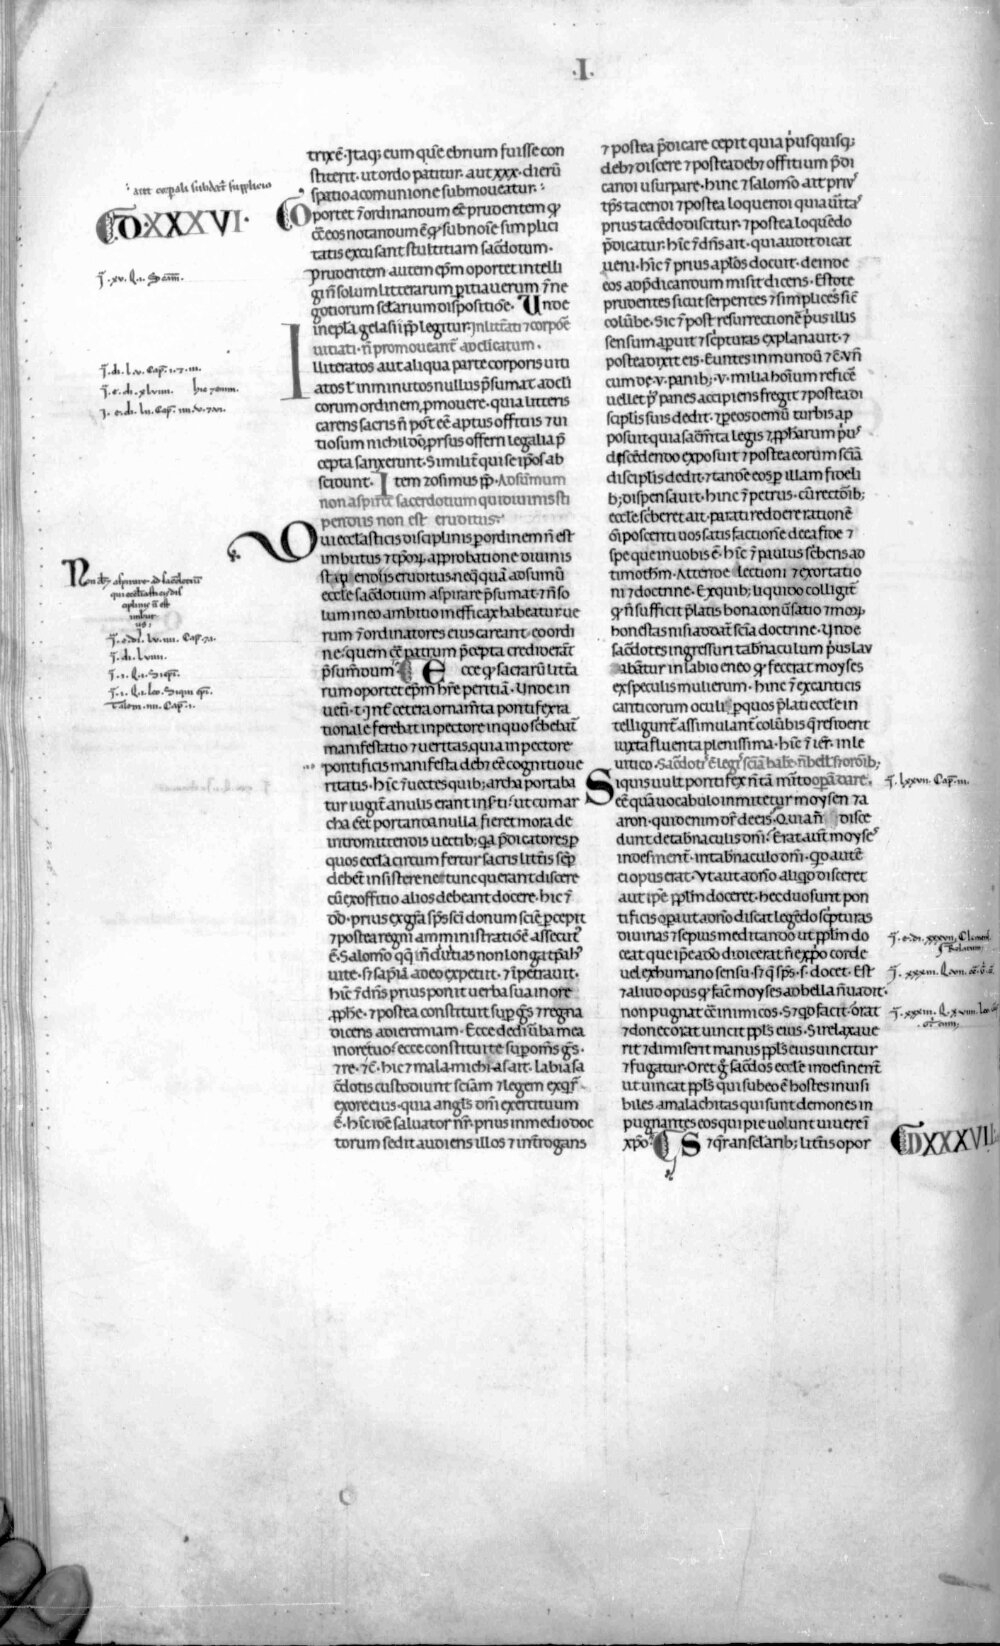 ·I·
trixe᷒. Itaq; eum que᷒ ebrium fuisse con
stiterit. ut ordo patitur. aut xxx. dierū
spatio a comunione submoueatur.
aut corpali subdat᷒ supplicio
D·XXXVI·
Oportet ⁊ ordinandum eē prudentem ꝙ
eē eos notandum ē ꝙ sub noīe simplici
tatis excusant stultitiam sac̄dotum.
Prudentem autem ep̄m oportet intelli
gi n̄ solum litterarum ꝑitia uerum ⁊ ne
gotiorum sc̄larium dispositiōe. Vnde
in ep̄la gelasii pp̄ legitur. In litt̄ati ⁊ corpōe
uitiati. n̄ promoueant᷒ ad clicatum.
Illiteratos aut aliqua parte corporis uiti
atos ł inminutos nullus p̄sumat ad cli
corum ordinem, ꝓmouere. quia litteris
carens sacris n̄ pōt eē aptus offitiis ⁊ ui
tiosum nichil dō, ꝓrsus offerri legalia p̄
cepta sanxerunt. Similit᷒ qui se ip̄os ab
scidunt. Item zosimus pp̄. Ad summum
non aspiret sacerdotium qui diuinis sti
pendiis non est eruditus.
Qui ecclasticis disciplinis ꝑ ordinem n̄ est
imbutus ⁊ tp̄oꝝ approbatione diuinis
stipendiis eruditus. neq̄quā ad sumū
eccle sac̄dotium aspirare p̄sumat. ⁊ n̄ so
lum in eo ambitio inefficax habeatur ue
rum ⁊ ordinatores eius careant. eo ordi
ne. quem eē patrum p̄cepta crediderāt
p̄sumendum. Ecce ꝙ sacrarū litt̄a
rum oportet ep̄m hr̄e peritiā. Vnde in
uet᷒i. t. int᷒ cetera ornam̄ta pontifex ra
tionale ferebat in pectore in quo sc̄bebat᷒
manifestatio ⁊ ueritas, quia in pectore
pontificis manifesta deb; eē cognitio ue
ritatis. hīc ⁊ uectes quib; archa portaba
tur iugit᷒ anulis erant inserti. ut cum ar
cha eēt portanda nulla fieret mora de
intromittendis uectib; q̄a p̄dicatores ꝑ
quos eccl̄a circum fertur sacris litt̄is semꝑ
debent insistere ne tunc querant discere
cū ex offitio alios debeant docere. hīc ⁊
dd. prius ex gr̄a sp̄s sc̄i donum scīe ꝑcepit
⁊ postea regni amministratiōē assecut᷒
ē. Salomō q̄q in diuitias non longā t̄pa
uite. s; sapīā a deo expetiit. ⁊ impetrauit.
hīc ⁊ dn̄s prius ponit uerba sua in ore
ꝓphe. ⁊ postea constituit sup gn̄s ⁊ regna
dicens ad ieremiam. Ecce dedi ūba mea
in ore tuo. ecce constitui te sup om̄s gn̄s.
⁊ re. ⁊c̄. hīc ⁊ malachias ait. labia sa
c̄dotis custodiunt sciām ⁊ legem exq̄r̄
ex ore eius. quia angl̄s dn̄i exercituum
ē. hīc idē saluator nr̄. prius in medio doc
torum sedit audiens illos ⁊ int̄rogans
⁊ postea p̄dicare cepit quia pus quisq;
deb; discere ⁊ postea deb; offitium p̄di
candi usurpare. hinc ⁊ salomō ait priꝰ
tp̄s tacendi ⁊ postea loquendi quia uīta᷒
prius tacēdo discitur. ⁊ postea loquēdo
p̄dicatur. hīc ⁊ dn̄s ait. qui audit dicat
ueni. hīc ⁊ prius aplōs docuit. deinde
eos ad p̄dicandum misit dicens. Estote
prudentes sicut serpentes ⁊ simplices sic̄
colūbe. Sic ⁊ post resurrectionē pus illis
sensum aꝑuit ⁊ sc̄pturas explanauit. ⁊
postea dixit eis. Euntes in mundū ⁊ c̄. Vn̄
cum de. v. panib;. v. milia hoīum reficē
uellet p̄ panes accipiens fregit ⁊ postea di
scip̄lis suis dedit. ⁊ ꝑ eos demū turbis ap
posuit quia sac̄m̄ta legis ⁊ ꝓpharum pus
descēdendo exposuit ⁊ postea eorum sciā
discip̄lis dedit. ⁊ tandē eos ꝑ illam fideli
b; dispensauit. hinc ⁊ petrus. cū rectōib;
eccle sc̄beret ait. parati reddere rationē
oi poscenti uos satisfactionē de ea fide ⁊
spe que in uobis ē. hīc ⁊ paulus sc̄bens ad
timothm̄. Attende lectioni ⁊ exortatio
ni ⁊ doctrine. Ex quib; liquido colligit᷒
ꝙ n̄ sufficit p̄latis bona conūsatio ⁊ moꝝ
honestas nisi addat᷒ scīa doctrine. Vnde
sac̄dotes ingressuri tab̄naculum p̄us lau
abāntur in labio eneo ꝙ fecerat moyses
ex speculis mulierum. hinc ⁊ ex canticis
canticorum oculi ꝑ quos p̄lati eccle in
telligunt᷒ assimulant᷒ colūbis q̄ resident
iuxta fluenta plenissima. hīc ⁊ ier̄. in le
uitico. Sac̄dotis ē legis sciā habē. n̄ bell᷒ istorib;
Siquis uult pontifex n̄ tā uocabulo 
eē quā uocabulo inmitetur moysen ⁊ a
aron. quid enim dr̄ de eis. Quia n̄ disce
dunt de tab̄naculis dn̄i. Erat aut᷒ moyses
indesinent᷒. in tab̄naculo dn̄i. Qd autē
eis opus erat. Vt aut a dn̄o aliqd disceret
aut ip̄e pp̄lm doceret. hec duo sunt pon
tificis opa ut a dn̄o discat legēdo sc̄pturas
diuinas ⁊ sepius meditando ut pp̄lm do
ceat que ip̄e a dō didicerat n̄ ex ꝓp̄o corde
uel ex humano sensu. s; q̄ sp̄s. s. docet. Est
⁊ aliud opus ꝙ facit moyses ad bella n̄ uadit.
non pugnat contra inimicos. S; qd facit. orat
⁊ donec orat uincit pp̄ls eius. Si relaxaue
rit ⁊ dimiserit manus pp̄ls eius uincitur
⁊ fugatur. Oret g̊ sac̄dos eccle indesinent᷒
ut uincat pp̄ls qui sub eo ē hostes inuisi
biles amalachitas qui sunt demones in
pugnantes eos qui pie uolunt uiuere ī
xp̄o. S; q̄r an secl̄arib; litt̄is opor
D·XXXVII·
J. xv. Q. i.
J. di. l. v. Cap. i. ⁊. iii.
J. e. di. xlviii.
Non deb; aspirare ad sac̄dotiū
qui ecclasticis dis
ciplinis n̄ est
imbut
us;
J. e. di. lv. iiii. Cap.
J. di. lviii.
J. i. Q. i. Siqui.
J. lxxvii. Cap. iii.
J. e. di. xxxvii. Clemens